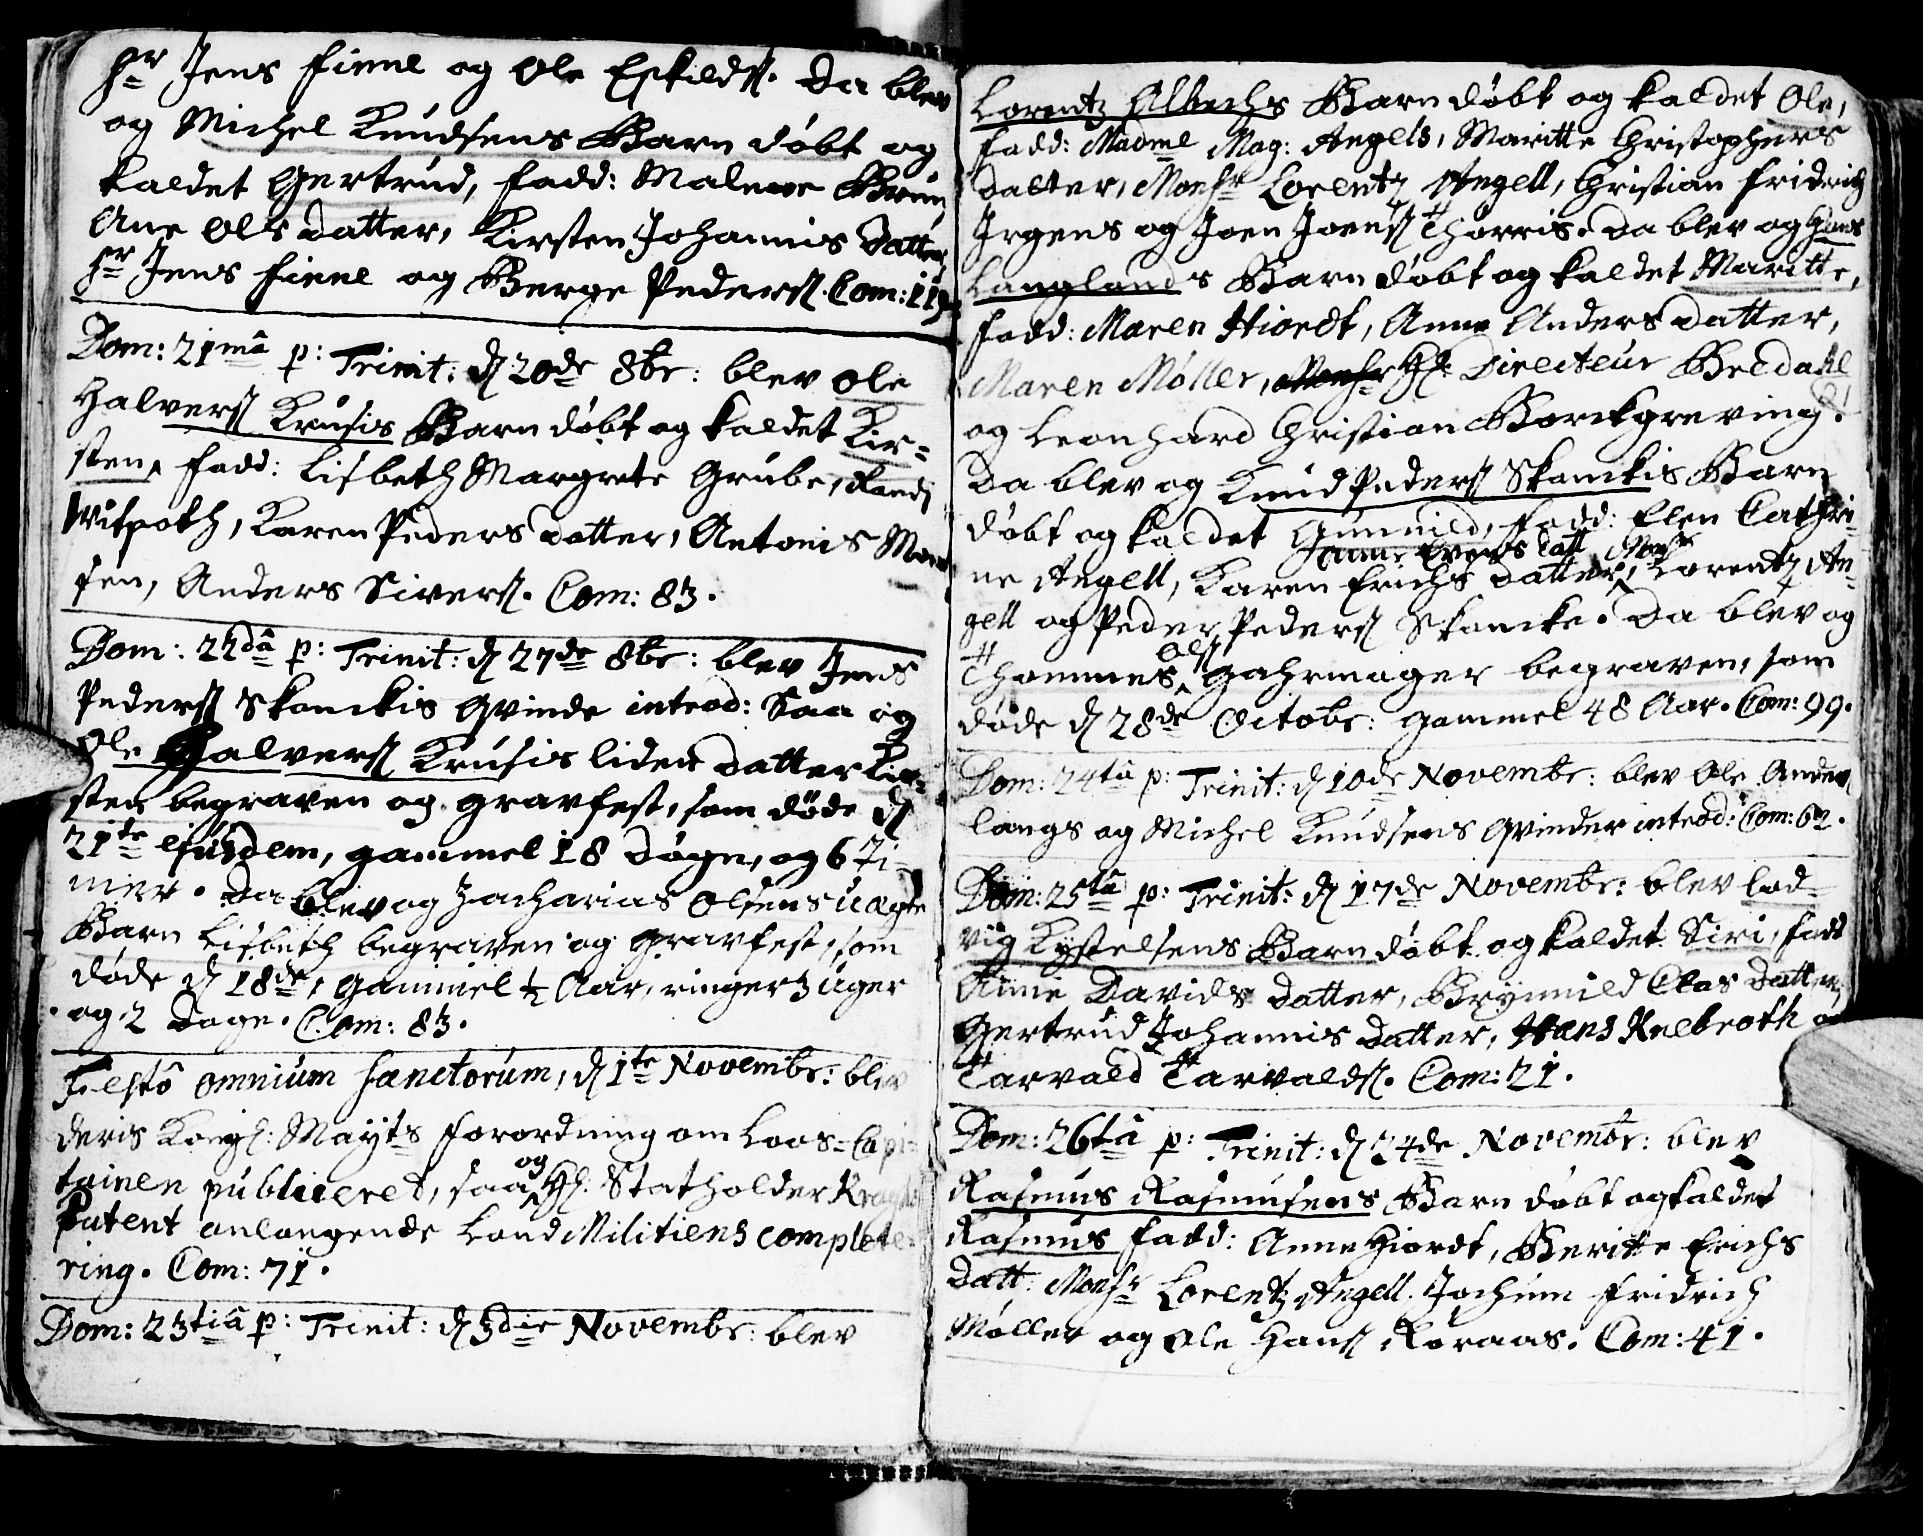 hr Jens Finne og Ole Eskilds. Da blev
og Michel Knudsens Barn døbt og
kaldet Gertrud, fadd: Malene Bruun
Ane Ols datter, Kirsten Johannis datter,
hr Jens Finne og Berge Peders. Com: 119.
Dom: 21mâ p: Trinit: d 20de 8br: blev Ole
Halvers Krusis Barn døbt og kaldet Kir=
sten, fadd: Lisbeth Margrete Grube, Randj
Witpoth, Karen Peders datter, Antonis
sen, Anders Sivers. Com: 83.
Dom: 22dâ p: Trinit: d 27de 8br: blev Jens
Peders Skanckis Qvinde introd: Saa og
Ole Halvers Krusis liden datter Kir=
sten begraven og gravfest, som døde d
21te ejusdem, gammel 18 døgn, og 6 Ti-
mer. Da blev og Zacharias Olsens uægte
Barn Lisbeth begraven og gravfest, som
døde d 18de, gammel ½ Aar, ringer 3 uger
og 2 dage. Com: 83.
Festô omnium sanctorum, d 1te Novembr: blev
deris Kongl: Mayts forordning om Loos=Capi-
tainen publiceret, saa og Hl: Statholder Kragis
Patent anlangende Land Militiens complete-
ring. Com: 71.
Dom: 23tiâ p: Trinit: d 3die Novembr: blev
Lorentz Albechs Barn døbt og kaldet Ole,
fadd: Madme Mag: Angels, Maritte Christophers
datter, Monsr Lorentz Angell, Christian Fridrich
Jrgens og Joen Joens Thorris. Da blev og Hans
Langlands Barn døbt og kaldet Maritte,
fadd: Maren Hiordt, Anne Anders datter,
Maren Møller, Monsr Hl: Directeur Bredahl
og Leonhard Christian Borckgreving.
Da blev og Knud Peders Skanckis Barn
døbt og kaldet Gunnild, fadd: Elen Cathri-
ne Angell, Karen Erichs datter, Anne Evens datt Monsr Lorentz An-
gell og Peder Peders Skancke. Da blev og
Thommes Ols Gahrmager begraven, som
døde d 28de Octobr: gammel 48 Aar. Com: 99.
Dom: 24tâ p: Trinit: d 10de Novembr: blev Ole Anders
langs og Michel Knudsens Qvinder introd: Com: 62.
Dom: 25tâ p: Trinit: d 17de Novembr: blev Lod=
vig Kystelsens Barn døbt og kaldet Siri, fadd
Anne Davids datter, Brynnild Clas datter,
Gertrud Johannis datter, Hans Knebroth og
Tarvald Tarvalds. Com: 21.
Dom: 26tâ p: Trinit: d 24de Novembr: blev
Rasmus Rasmusens Barn døbt og kaldet
Rasmus fadd: Anne Hiordt, Beritte Erichs
datt. Monsr Lorentz Angell. Jochum Fridrich
Møller og Ole Hans Røraas. Com: 41.